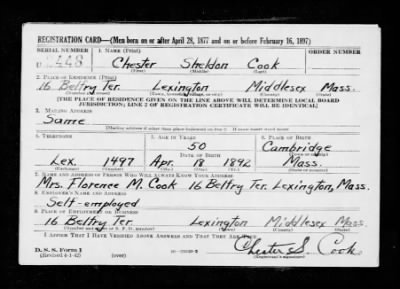 REGISTRATION CARD—(Men born on or after April 28, 1877 and on or before February 16, 1897)
SERIAL NUMBER 1. NAME (Print) ORDER NUMBER
U 2448 Chester Sheldon Cook
(First) (Middle) (Last)
2. PLACE OF RESIDENCE (Print)
16 Belfry Ter. Lexington Middlesex Mass.
(Number and street) (Town, township, village, or city) (County) (State)
[THE PLACE OF RESIDENCE GIVEN ON THE LINE ABOVE WILL DETERMINE LOCAL BOARD
JURISDICTION; LINE 2 OF REGISTRATION CERTIFICATE WILL BE IDENTICAL]
3. MAILING ADDRESS
Same
(Mailing address if other than place indicated on line 2. If same insert word same)
4. TELEPHONE 5. AGE IN YEARS 6. PLACE OF BIRTH
50 Cambridge
DATE OF BIRTH
Lex. 1497 Apr. 18 1892 Mass.
7. NAME AND ADDRESS OF PERSON WHO WILL ALWAYS KNOW YOUR ADDRESS
Mrs. Florence M. Cook 16 Belfry Ter. Lexington, Mass.
8. EMPLOYER'S NAME AND ADDRESS
Self-employed
9. PLACE OF EMPLOYMENT OR BUSINESS
16 Belfry Ter. Lexington Middlesex Mass.
(Number and street or R. F. D. number) (Town) (County) (State)
I AFFIRM THAT I HAVE VERIFIED ABOVE ANSWERS AND THAT THEY ARE TRUE.
D. S. S. Form 1
(Revised 4-1-42) (over) Chester S. Cook
(Registrant's signature)